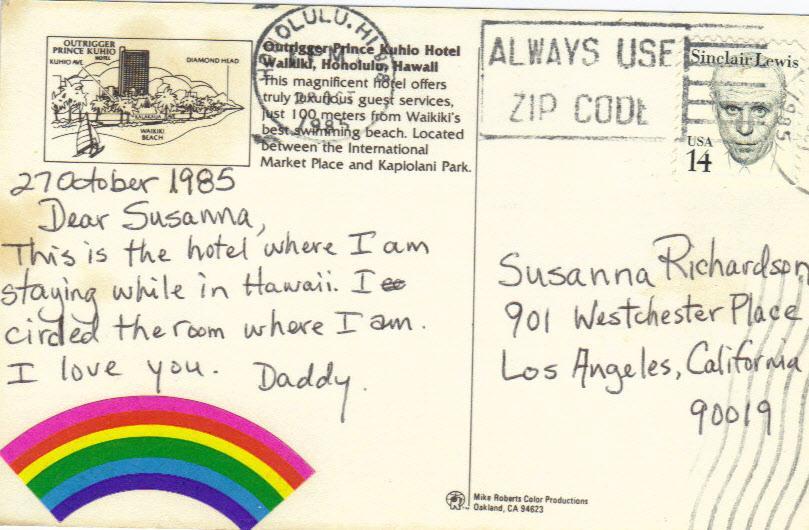 OUTRIGGER
PRINCE KUHIO
HOTEL
KUHIO AVE
DIAMOND HEAD
KALAKAUA AVE
WAIKIKI
BEACH
Outrigger Prince Kuhio Hotel
Waikiki, Honolulu, Hawaii
This magnificent hotel offers
truly luxurious guest services,
just 100 meters from Waikiki's
best swimming beach. Located
between the International
Market Place and Kapiolani Park.
HONOLULU, HI
1985
ALWAYS USE
ZIP CODE
Sinclair Lewis
USA
14
1985
27 October 1985
Dear Susanna,
This is the hotel where I am
staying while in Hawaii. I
circled the room where I am.
I love you. Daddy.
Susanna Richardson
901 Westchester Place
Los Angeles, California
90019
Mike Roberts Color Productions
Oakland, CA 94623